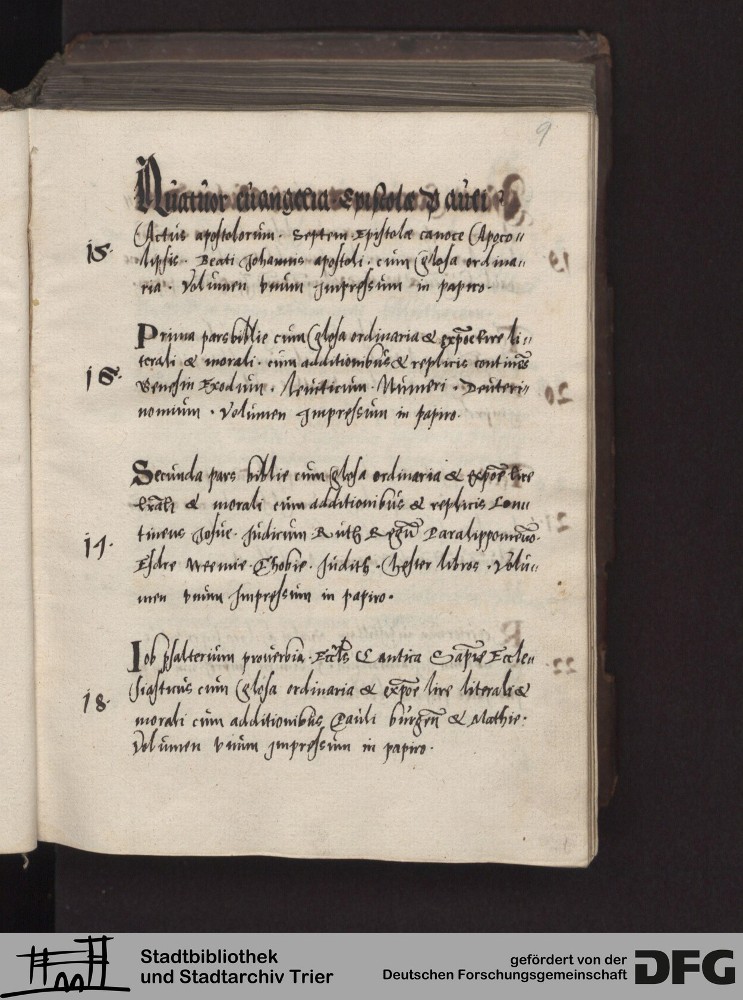 9
Quatuor euangelia Epistole Pauli
Actus apostolorum. Septem Epistole canoce Apoco"
15. lipsis. Beati Johannis apostoli. cum Glosa ordina"
ria. Volumen vnum jmpressum in papiro.
Prima pars biblie cum Glosa ordinaria & expoe lire li"
terali & morali. cum additionibus & replicis continens
16. Genesim Exodum. Leuiticum. Numeri. Deuteri"
nomium. Volumen jmpressum in papiro.
Secunda pars biblie cum glosa ordinaria & expoe lire
lrali & morali cum additionibus & replicis Con"
17. tinens Josue. Judicum Ruth Regu Paralippomenon.
Esdre Neemie. Thobie. Judith. Hester libros. Volu"
men vnum Jmpressum in papiro.
Job psalterium prouerbia. Eccles Cantica Sapie Eccle"
18. siasticus cum Glosa ordinaria & expoe lire literali &
morali cum additionibus Pauli burgen & Mathie.
Volumen vnum jmpressum in papiro.
19
20
21
22
Stadtbibliothek
und Stadtarchiv Trier
gefördert von der
Deutschen Forschungsgemeinschaft
DFG